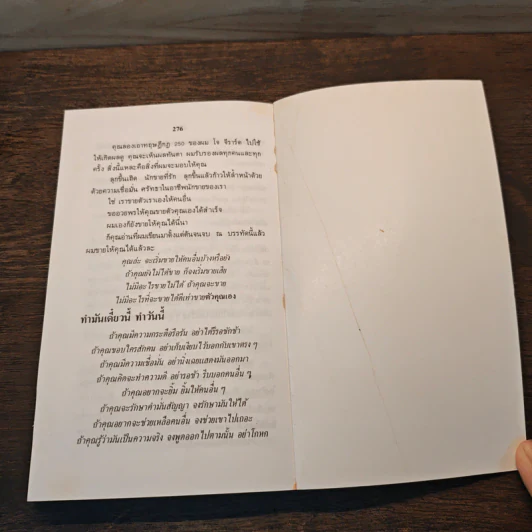 276
คุณลองเอาทฤษฎีกฎ 250 ของผม โจ จีราร์ด ไปใช้
ให้เกิดผลดู คุณจะเห็นผลทันตา ผมรับรองผลทุกคนและทุก
ครั้ง สิ่งนี้แหละคือสิ่งที่ผมจะมอบให้คุณ
ลุกขึ้นเถิด นักขายที่รัก ลุกขึ้นแล้วก้าวให้ล้ำหน้าด้วย
ด้วยความเชื่อมั่น ศรัทธาในอาชีพนักขายของเรา
ใช่ เราขายตัวเราเองให้คนอื่น
ขออวยพรให้คุณขายตัวคุณเองได้สำเร็จ
ผมเองก็ยังขายให้คุณได้นี่นา
ก็คุณอ่านที่ผมเขียนมาตั้งแต่ต้นจนจบ ณ บรรทัดนี้แล้ว
ผมขายให้คุณได้แล้วละ
คุณล่ะ จะเริ่มขายให้คนอื่นบ้างหรือยัง
ถ้าคุณยังไม่ได้ขาย ก็จงเริ่มขายเสีย
ไม่มีอะไรขายไม่ได้ ถ้าคุณจะขาย
ไม่มีอะไรที่จะขายได้ดีเท่าขายตัวคุณเอง
ทำมันเดี๋ยวนี้ ทำวันนี้
ถ้าคุณมีความกระตือรือร้น อย่าได้รีรอชักช้า
ถ้าคุณชอบใครสักคน อย่าเก็บเงียบไว้บอกกับเขาตรง ๆ
ถ้าคุณมีความเชื่อมั่น อย่านิ่งเฉยแสดงมันออกมา
ถ้าคุณคิดจะทำความดี อย่ารอช้า รีบบอกคนอื่น ๆ
ถ้าคุณอยากจะยิ้ม ยิ้มให้คนอื่น ๆ
ถ้าคุณจะรักษาคำมั่นสัญญา จงรักษามันให้ได้
ถ้าคุณอยากจะช่วยเหลือคนอื่น จงช่วยเขาไปเถอะ
ถ้าคุณรู้ว่ามันเป็นความจริง จงพูดออกไปตามนั้น อย่าโกหก